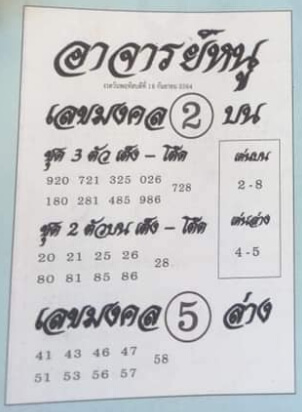 อาจารย์หนู
งวดวันพฤหัสบดีที่ 16 กันยายน 2564
เลขมงคล 2 บน
ชุด 3 ตัว เต็ง – โต๊ด
920 721 325 026
728
180 281 485 986
เด่นบน
2-8
ชุด 2 ตัวบน เต็ง – โต๊ด
20 21 25 26
28
80 81 85 86
เด่นล่าง
4-5
เลขมงคล 5 ล่าง
41 43 46 47
58
51 53 56 57